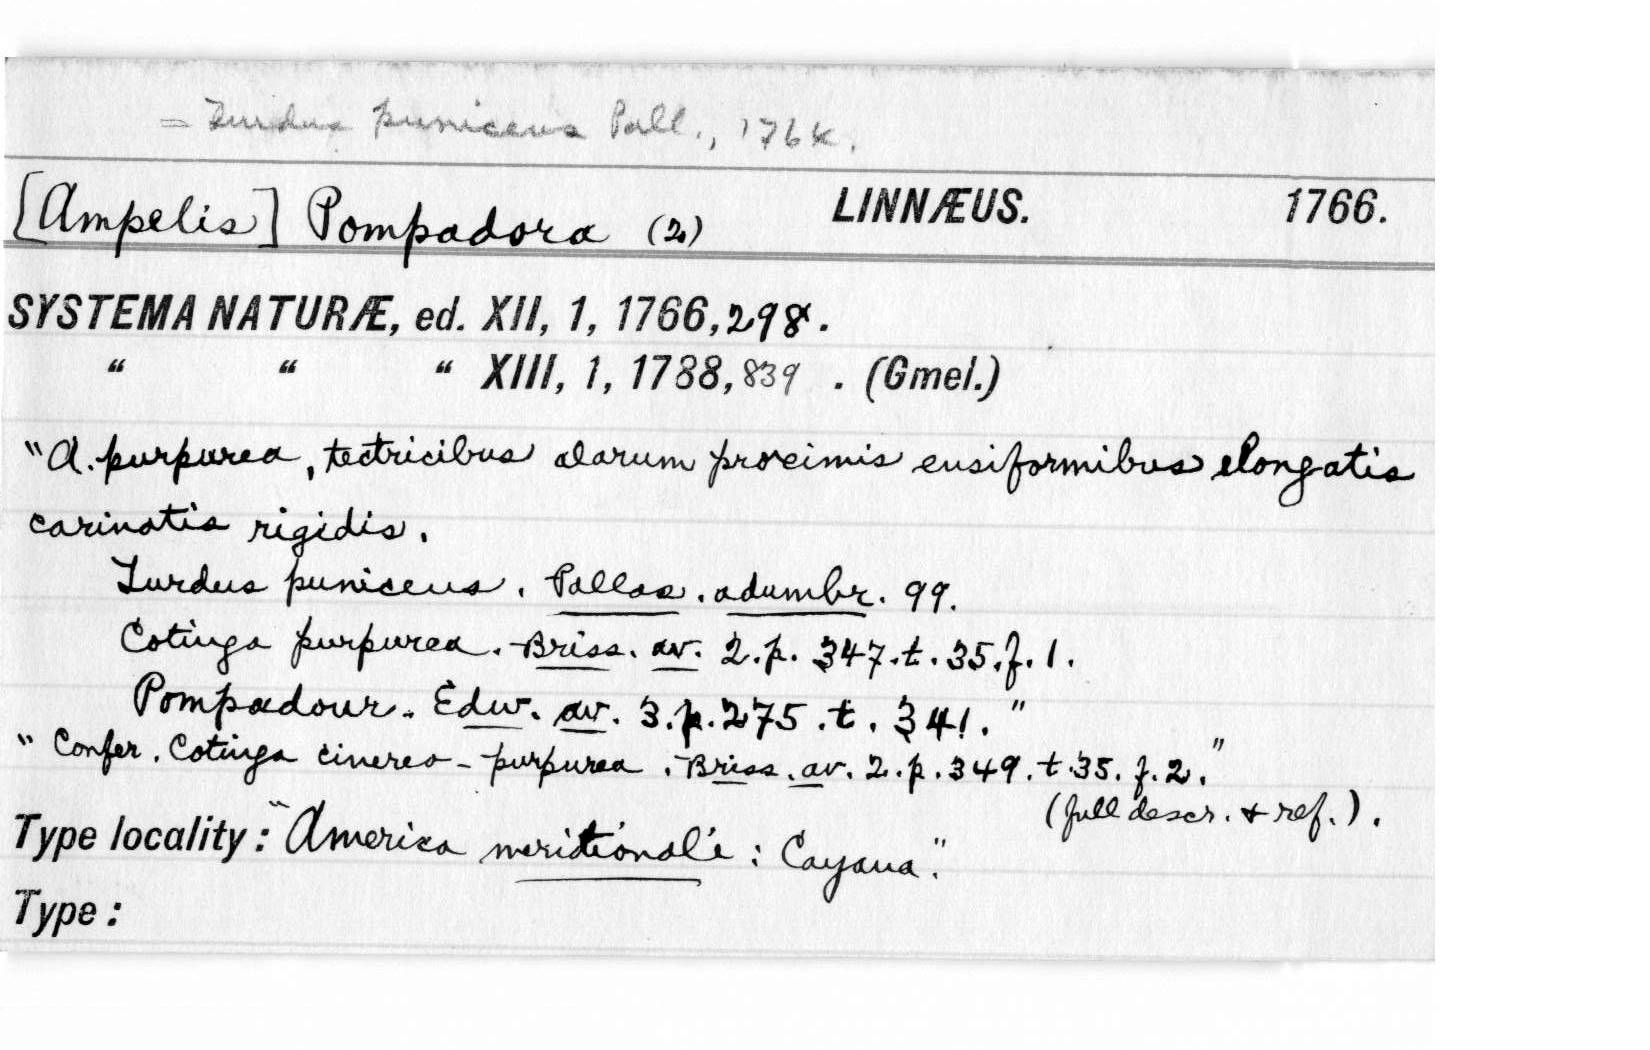 = Turdus puniceus Pall., 1764.
[Ampelis] Pompadora (2) LINNÆUS. 1766.
SYSTEMA NATURÆ, ed. XII, 1, 1766, 298.
“ “ “ XIII, 1, 1788, 839 . (Gmel.)
"A. purpurea, tectricibus alarum proximis ensiformibus elongatis
carinatis rigidis.
Turdus puniceus. Pallas. adumbr. 99.
Cotinga purpurea. Briss. av. 2. p. 347. t. 35. f. 1.
Pompadour. Edw. av. 3. p. 275. t. 341."
"Confer. Cotinga cinereo-purpurea. Briss. av. 2. p. 349. t. 35. f. 2."
(full descr. & ref.).
Type locality: "America meridionali: Cayana".
Type: